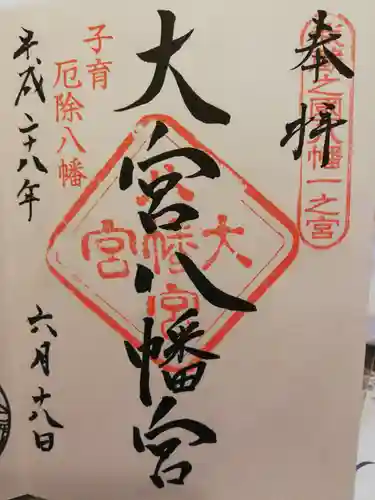 奉拝
武蔵之國八幡一之宮
大宮八幡宮
大宮八幡宮
子育
厄除八幡
平成二十八年
六月十八日